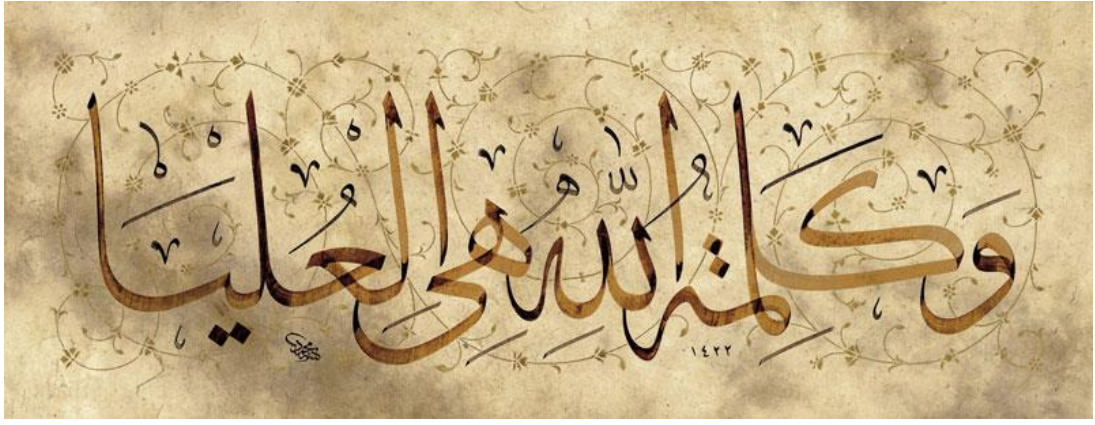 وَكَلِمَةُ اللَّهِ هِيَ الْعُلْيَا
١٤٢٢